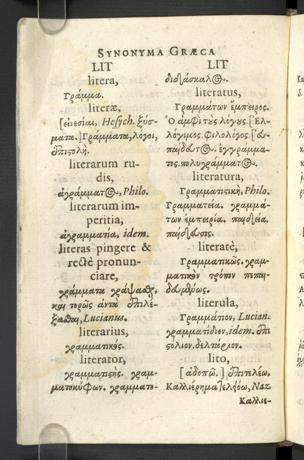 SYNONYMA GRÆCA
LIT
litera,
Γράμμα.
literæ,
Hesych.
ματα.] Γράμματα, λόγοι,
ἐπιστολή.
literarum ru-
dis,
ἀγράμματος, Philo.
literarum im-
peritia,
ἀγραμματία, idem.
literas pingere &
rectè pronun-
ciare,
γράμματα γράψασθαι
καὶ τορῶς αὐτὰ
Lucianus.
literarius,
γραμματικός.
literator,
γραμματιστής. γραμ-
ματοκύφων. γραμματο-
LIT
διδάσκαλος.
literatus,
Γραμμάτων ἔμπειρος.
λόγους
λόγιμος. Φιλολόγος
ἐγγράμμα-
τος. πολυγράμματος.
literatura,
Γραμματική, Philo.
Γραμματεία. γραμμά-
των ἐμπειρία. παιδεία.
παίδευσις.
literatè,
Γραμματικῶς. γραμ-
ματικὸν τρόπον πεπαι-
δευμένως.
literula,
Γραμμάτιον, Lucian.
γραμματίδιον, idem. ἐπι-
στόλιον. δελτάριον.
lito,
ἐπιτελέω,
Καλλιέρημα Naz
Καλλιε-